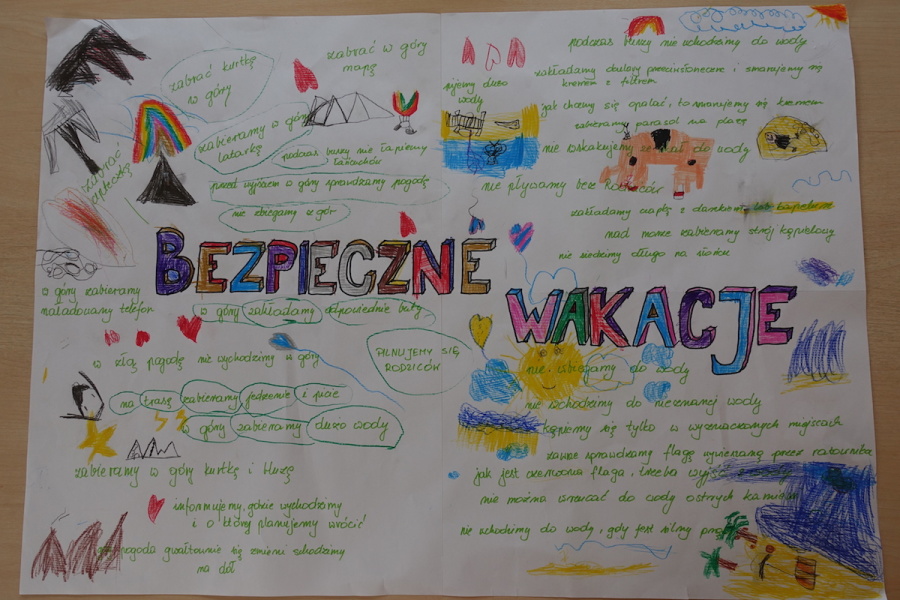 zabrać kurtkę
w góry
zabrać w góry
mapę
zabieramy w góry
latarkę
podczas burzy nie łapiemy
łańcuchów
zabrać
apteczkę
przed wyjściem w góry sprawdzamy pogodę
nie zbiegamy z gór
BEZPIECZNE
WAKACJE
w góry zabieramy
naładowany telefon
w góry zakładamy odpowiednie buty
w złą pogodę nie wychodzimy w góry
PILNUJEMY SIĘ
RODZICÓW
na trasę zabieramy jedzenie i picie
w góry zabieramy dużo wody
zabieramy w góry kurtkę i bluzę
informujemy, gdzie wychodzimy
i o której planujemy wrócić
pogoda gwałtownie się zmieni schodzimy
na dół
podczas burzy nie wchodzimy do wody
pijemy dużo
wody
zakładamy okulary przeciwsłoneczne i smarujemy się
kremem z filtrem
jak chcemy się opalać, to smarujemy się kremem
zabieramy parasol na plażę
nie wskakujemy ze skał do wody
nie pływamy bez
zakładamy czapkę z daszkiem
nad morze zabieramy strój kąpielowy
nie siedzimy długo na słońcu
nie wbiegamy do wody
nie wchodzimy do nieznanej wody
kąpiemy się tylko w wyznaczonych miejscach
zawsze sprawdzamy flagę wywieszaną przez ratownika
jak jest czerwona flaga, trzeba wyjść
nie można wrzucać do wody ostrych kamieni
nie wchodzimy do wody, gdy jest silny